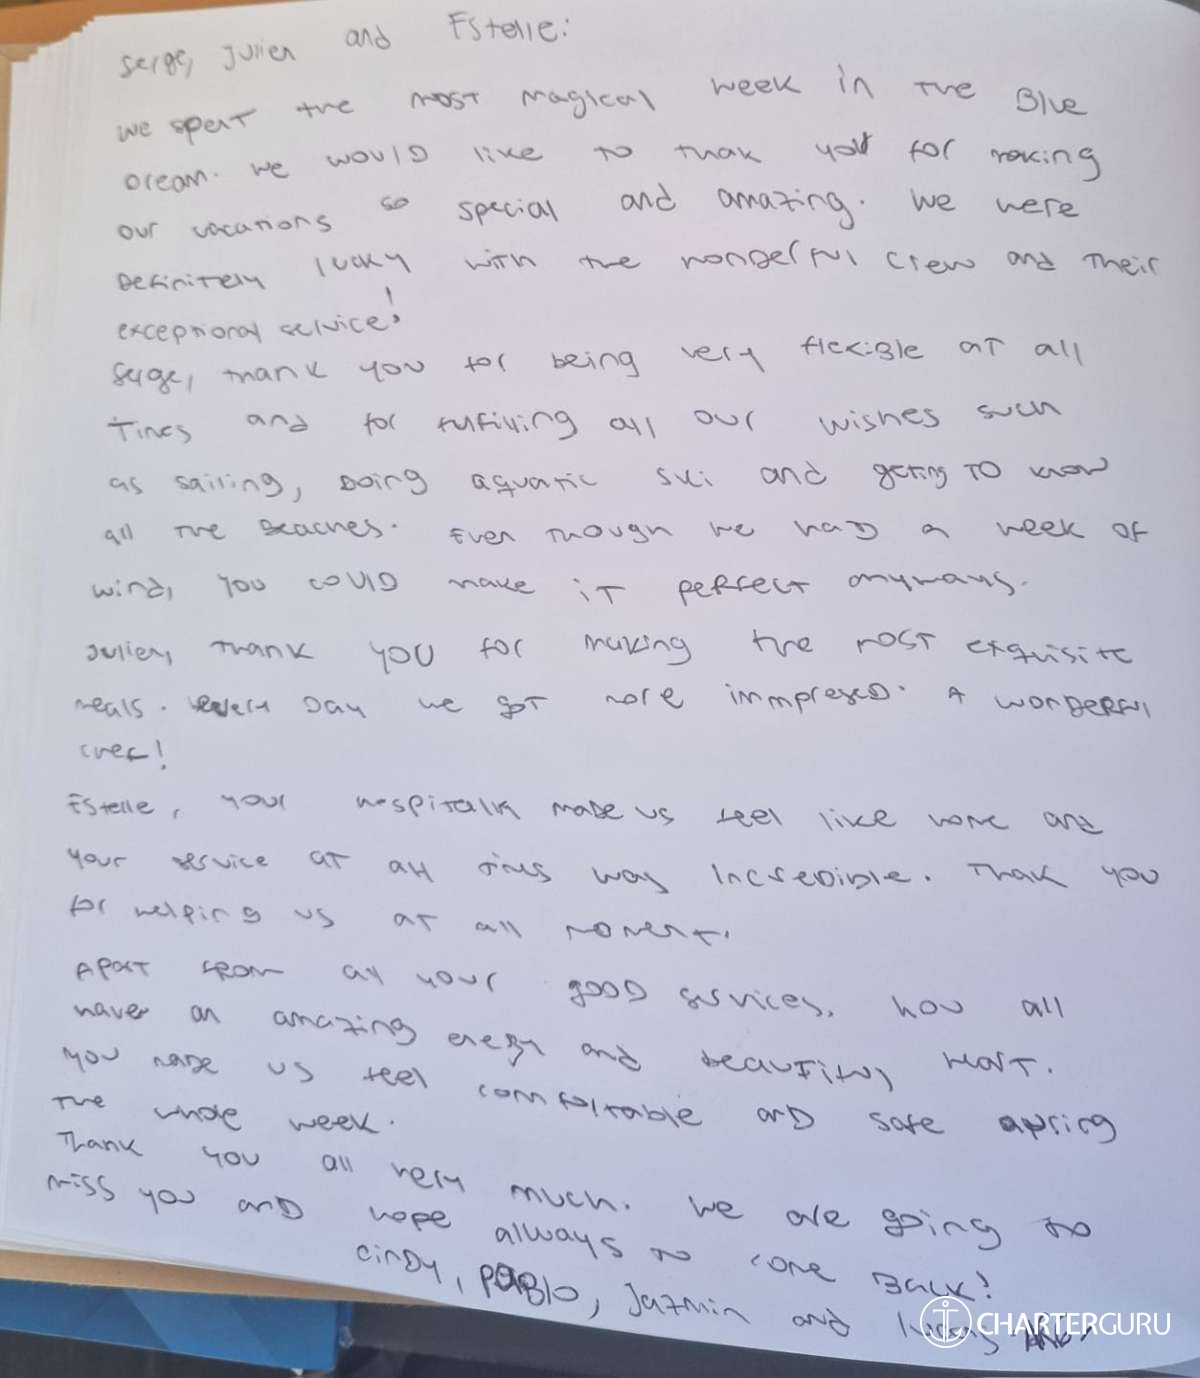 Serge, Julien and Estelle:
We spent the most magical week in the Blue
Ocean. We would like to thak you for making
our vacations so special and amazing. We were
Definitely lucky with the wonderful crew and their
exceptional service!
Serge, thank you for being very flexible at all
Times and for fulfilling all our wishes such
as sailing, doing aquatic ski and geting to know
all the beaches. Even though we had a week of
wind, you could make it perfect anyways.
Julien, thank you for making the most exquisite
meals. every day we got more immpresed. A wonderful
chef!
Estelle, your hospitality made us feel like home and
your service at all times way incredible. Thak you
for helping us at all moment.
Apart from all your good services, you all
have an amazing energy and beautiful heart.
You made us feel comfortable and safe
the whole week.
Thank you all very much. We are going to
miss you and hope allways to come back!
Cindy, Pablo, Jazmin and
CHARTERGURU